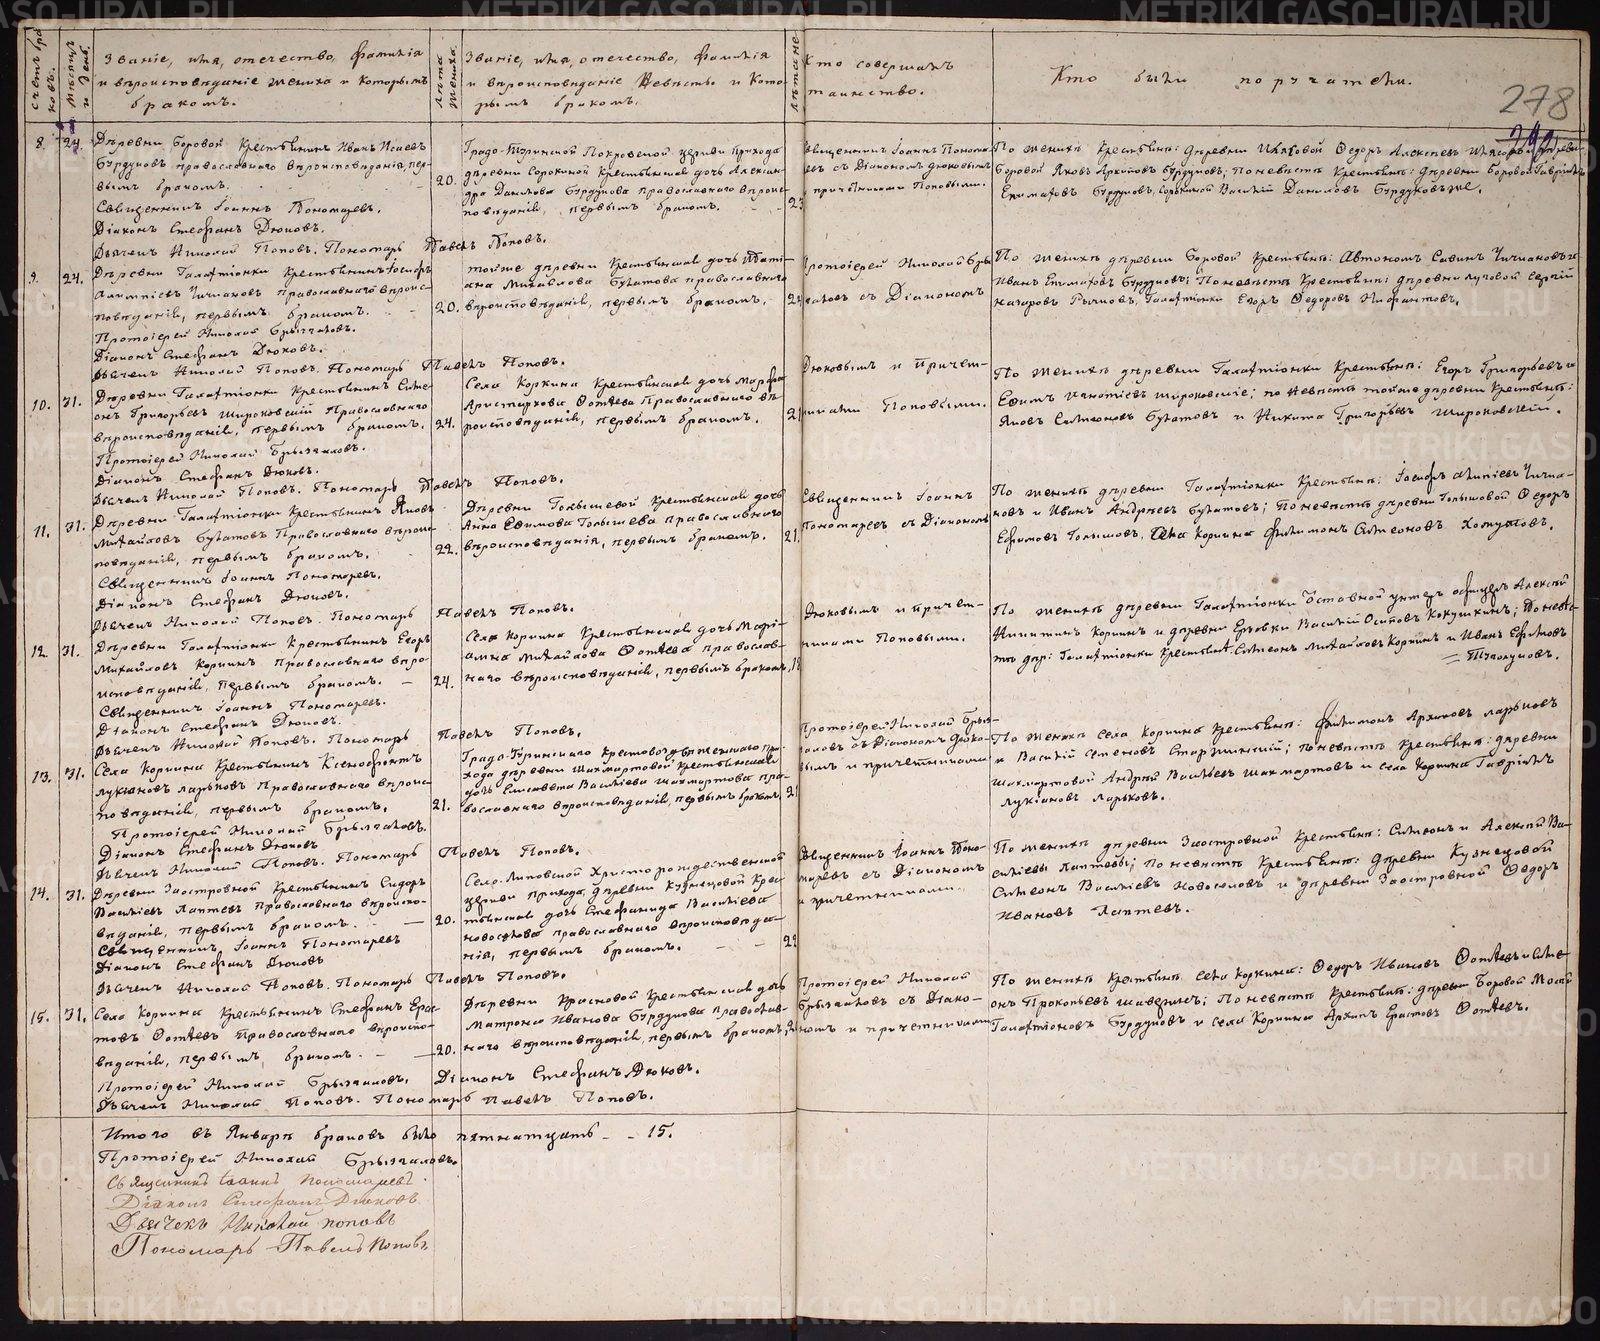 Счетъ бра
ковъ.
Мѣсяцъ
и день.
Званіе, имя, отечество, фамилія
и вѣроисповѣданіе жениха и которымъ
бракомъ.
Лѣта
жениха.
Званіе, имя, отечество, фамилія
и вѣроисповѣданіе невѣсты и кото-
рымъ бракомъ.
Лѣта не-
Кто совершалъ
таинство.
Кто были поручатели.
278
8. 24. Деревни Боровой крестьянинъ Иванъ Исаевъ
Бурдуковъ православнаго вѣроисповѣданія, пер-
вымъ бракомъ.
20.
Градо-Туринской Покровской церкви прихода
деревни Сорокиной крестьянская дочь Алексан-
дра Данилова Бурдукова православнаго вѣроис-
повѣданія, первымъ бракомъ.
23
Священникъ Іоаннъ Понома-
ревъ съ Діакономъ Дюковымъ
и причетниками Поповыми.
По женихѣ крестьяне: деревни
Боровой Яковъ Архиповъ Бурдуковъ; по невѣстѣ крестьяне: деревни Боровой Гаврилъ
Екимовъ Бурдуковъ, Сорокиной Василій Даниловъ Бурдуковъ же.
Священникъ Іоаннъ Пономаревъ.
Діаконъ Стефанъ Дюковъ.
Дьячекъ Николай Поповъ. Пономарь Павелъ Поповъ.
9. 24. Деревни Галактіонки крестьянинъ Іосифъ
Алимпіевъ Чичкановъ православнаго вѣроис-
повѣданія, первымъ бракомъ.
20.
тойже деревни крестьянская дочь Тати-
яна Михайлова Булатова православнаго
вѣроисповѣданія, первымъ бракомъ.
24
Протоіерей Николай Брыз-
галовъ съ Діакономъ
По женихѣ деревни Боровой крестьяне: Автономъ Савинъ Чичкановъ и
Иванъ Екимовъ Бурдуковъ; по невѣстѣ крестьяне: деревни Луговой Сергій
Назаровъ Рычковъ, Галактіонки Егоръ Ѳедоровъ Никфонтовъ.
Протоіерей Николай Брызгаловъ.
Діаконъ Стефанъ Дюковъ.
Дьячекъ Николай Поповъ. Пономарь Павелъ Поповъ.
10. 31. Деревни Галактіонки крестьянинъ Симе-
онъ Григорьевъ Широковскій православнаго
вѣроисповѣданія, первымъ бракомъ.
24.
Села Коркина крестьянская дочь Марфа
Аристархова Фотѣева православнаго вѣ-
роисповѣданія, первымъ бракомъ.
21
Дюковымъ и причет-
никами Поповыми.
По женихѣ деревни Галактіонки крестьяне: Егоръ Григорьевъ и
Ефимъ Игнатіевъ Широковскіе; по невѣстѣ тойже деревни крестьяне:
Яковъ Симеоновъ Булатовъ и Никита Григорьевъ Широковскій.
Протоіерей Николай Брызгаловъ.
Діаконъ Стефанъ Дюковъ.
Дьячекъ Николай Поповъ. Пономарь Павелъ Поповъ.
11. 31. Деревни Галактіонки крестьянинъ Яковъ
Михайловъ Булатовъ православнаго вѣроис-
повѣданія, первымъ бракомъ.
22.
Деревни Голышевой крестьянская дочь
Анна Ефимова Голышева православнаго
вѣроисповѣданія, первымъ бракомъ.
21.
Священникъ Іоаннъ
Пономаревъ съ Діакономъ
По женихѣ деревни Галактіонки крестьяне: Іосифъ Алимпіевъ Чичка-
новъ и Иванъ Андреевъ Булатовъ; по невѣстѣ деревни Голышевой Ѳедоръ
Ефимовъ Голышевъ, села Коркина Филимонъ Симеоновъ Хомутовъ.
Священникъ Іоаннъ Пономаревъ.
Діаконъ Стефанъ Дюковъ.
Дьячекъ Николай Поповъ. Пономарь Павелъ Поповъ.
12. 31. Деревни Галактіонки крестьянинъ Егоръ
Михайловъ Коркинъ православнаго вѣро-
исповѣданія, первымъ бракомъ.
24.
Села Коркина крестьянская дочь Марі-
амна Михайлова Фотѣева православ-
наго вѣроисповѣданія, первымъ бракомъ.
Дюковымъ и причет-
никами Поповыми.
По женихѣ деревни Галактіонки отставной унтеръ офицеръ Алексѣй
Никитинъ Коркинъ и деревни Ерзовки Василій Осиповъ Кокушкинъ; по невѣс-
тѣ дер: Галактіонки крестьяне: Симеонъ Михайловъ Коркинъ и Иванъ Ефимовъ
Священникъ Іоаннъ Пономаревъ.
Діаконъ Стефанъ Дюковъ.
Дьячекъ Николай Поповъ. Пономарь Павелъ Поповъ.
13. 31. Села Коркина крестьянинъ Ксенофонтъ
Лукіановъ Ларьковъ православнаго вѣроис-
повѣданія, первымъ бракомъ.
21.
Градо-Туринскаго Крестовоздвиженскаго при-
хода деревни Шахмартовой крестьянская
дочь Елисавета Васильева Шахмартова пра-
вославнаго вѣроисповѣданія, первымъ бракомъ.
2
Протоіерей Николай Брыз-
галовъ съ Діакономъ Дюко-
вымъ и причетниками
По женихѣ села Коркина крестьяне: Филимонъ Архиповъ Ларьковъ
и Василій Семеновъ Старжинскій; по невѣстѣ крестьяне: деревни
Шахмартовой Андрей Васильевъ Шахмартовъ и села Коркина Гаврилъ
Лукіановъ Ларьковъ.
Протоіерей Николай Брызгаловъ.
Діаконъ Стефанъ Дюковъ
Дьячекъ Николай Поповъ. Пономарь Павелъ Поповъ.
14. 31. Деревни Заостровной крестьянинъ Сидоръ
Васильевъ Лаптевъ православнаго вѣроиспо-
вѣданія, первымъ бракомъ.
20.
Село-Липовской Христорождественской
церкви прихода, деревни Кузнецовой крес-
тьянская дочь Стефанида Васильева
Новоселова православнаго вѣроисповѣда-
нія, первымъ бракомъ.
22
Священникъ Іоаннъ Поно-
маревъ съ Діакономъ
и причетниками.
По женихѣ деревни Заостровной крестьяне: Симеонъ и Алексѣй Ва-
сильевы Лаптевы; по невѣстѣ крестьяне: деревни Кузнецовой
Симеонъ Васильевъ Новоселовъ и деревни Заостровной Ѳедоръ
Ивановъ Лаптевъ.
Священникъ Іоаннъ Пономаревъ
Діаконъ Стефанъ Дюковъ
Дьячекъ Николай Поповъ. Пономарь Павелъ Поповъ.
15. 31. Села Коркина крестьянинъ Стефанъ Ерас-
товъ Фотѣевъ православнаго вѣроиспо-
вѣданія, первымъ бракомъ.
20.
Деревни Красновой крестьянская дочь
Матрона Иванова Бурдукова православ-
наго вѣроисповѣданія, первымъ бракомъ.
Протоіерей Николай
Брызгаловъ съ Діако-
номъ и причетниками
По женихѣ крестьяне села Коркина: Ѳедоръ Ивановъ Фотѣевъ и Симе-
онъ Прокопьевъ Шаверинъ; по невѣстѣ крестьяне: деревни Боровой Моисей
Галактіоновъ Бурдуковъ и села Коркина Архипъ Ерастовъ Фотѣевъ.
Протоіерей Николай Брызгаловъ. Діаконъ Стефанъ Дюковъ.
Дьячекъ Николай Поповъ. Пономарь Павелъ Поповъ.
Итого въ Январѣ браковъ было пятнатцать - - 15.
Протоіерей Николай Брызгаловъ.
Священникъ Іоаннъ Пономаревъ.
Діаконъ Стефанъ Дюковъ.
Дьячекъ Николай Поповъ
Пономарь Павелъ Поповъ
METRIKI.GASO-URAL.RU